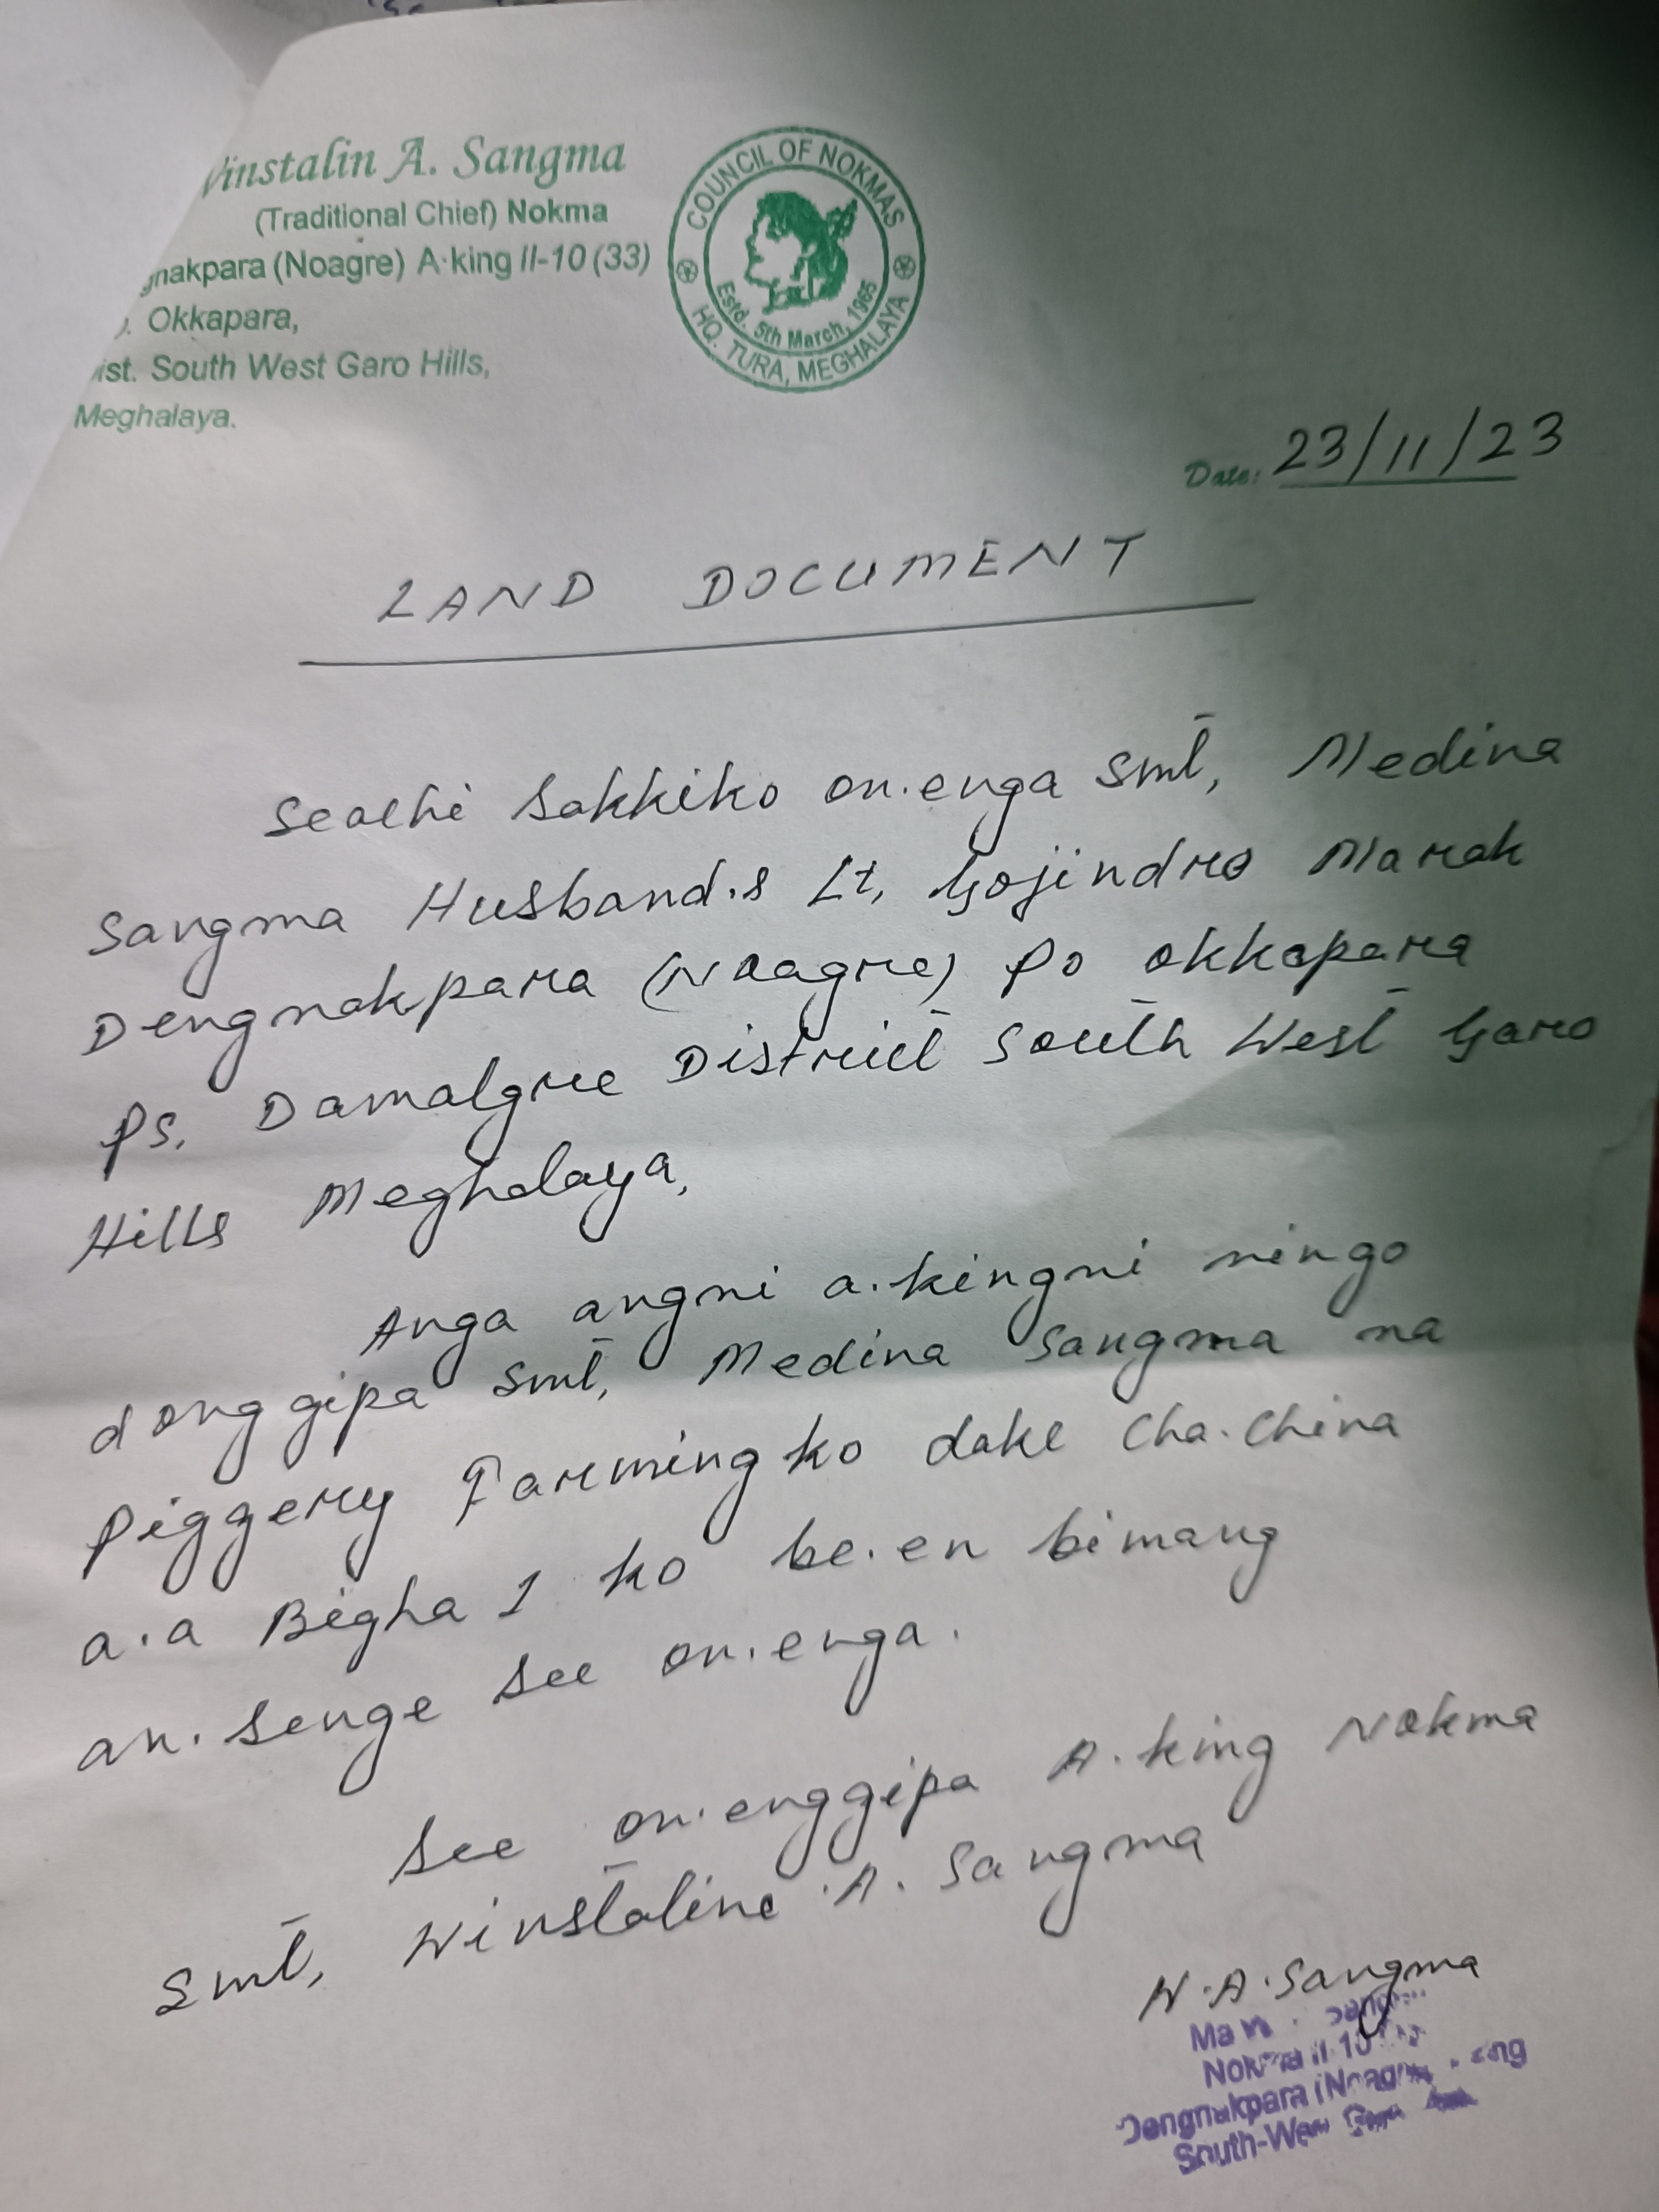 instalin A. Sangma
(Traditional Chief) Nokma
gnakpara (Noagre) A·king II-10 (33)
. Okkapara,
ist. South West Garo Hills,
Meghalaya.
COUNCIL OF NOKMAS
Estd. 5th March, 1965
HQ. TURA, MEGHALAYA
Date: 23/11/23
LAND DOCUMENT
Seachi Sakkiko on.enga Smt, Medina
Sangma Husband.s Lt, Gojindro Marak
Dengnakpara (Noagre) Po Okkapara
Ps. Damalgre District South West Garo
Hills Meghalaya,
Anga angni a.kingni ningo
donggipa Smt, Medina Sangma na
Piggery Farming ko dake cha.china
a.a Bigha 1 ko be.en bimang
an.senge see on.enga.
See on.enggipa A.king Nokma
Smt, Winstaline A. Sangma
W.A.Sangma
Nokma II 10
Dengnakpara (Noagre
South-West